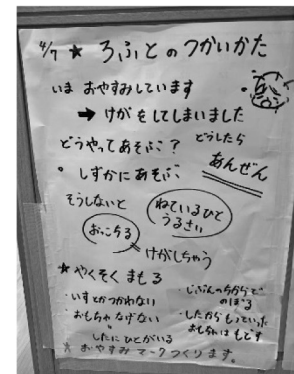 4/7 ★ ろふとのつかいかた
いま おやすみしています
➡ けがをしてしまいました
どうやってあそぶ？ どうしたら
あんぜん
・しずかにあそぶ
そうしないと
おっこちる
ねているひと
うるさい
けがしちゃう
★ やくそく まもる
・いすとかつかわない
・おもちゃ なげない
したにひとがいる
・じぶんのちからで
のぼる
・したからもっていった
おもちゃはもどす
☆ おやすみマークつくります。